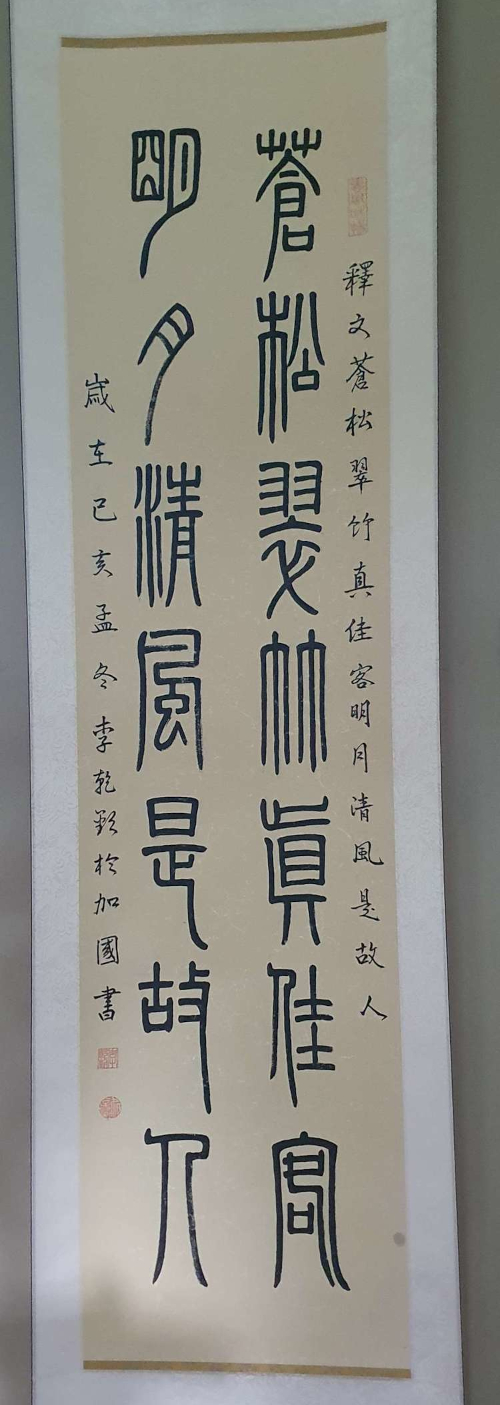 釋文蒼松翠竹真佳客明月清風是故人
蒼松翠竹真佳客
明月清風是故人
歲在己亥孟冬李乾於加國書